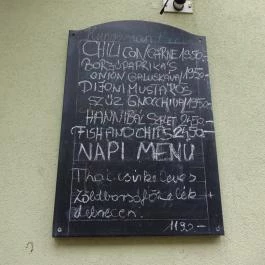 CHILI CON CARNE 1950-
BORZÚPAPRIKÁS
GALUSKÁVAL 1950-
DIJONI MUSTÁROS
SZŰZ GNOCCHIVAL 1950-
HANNIBÁL SZELET 2450-
FISH AND CHIPS 2450-
NAPI MENÜ
Thai csirkeleves
Zöldborsófőzelék
debrecen.
1190-